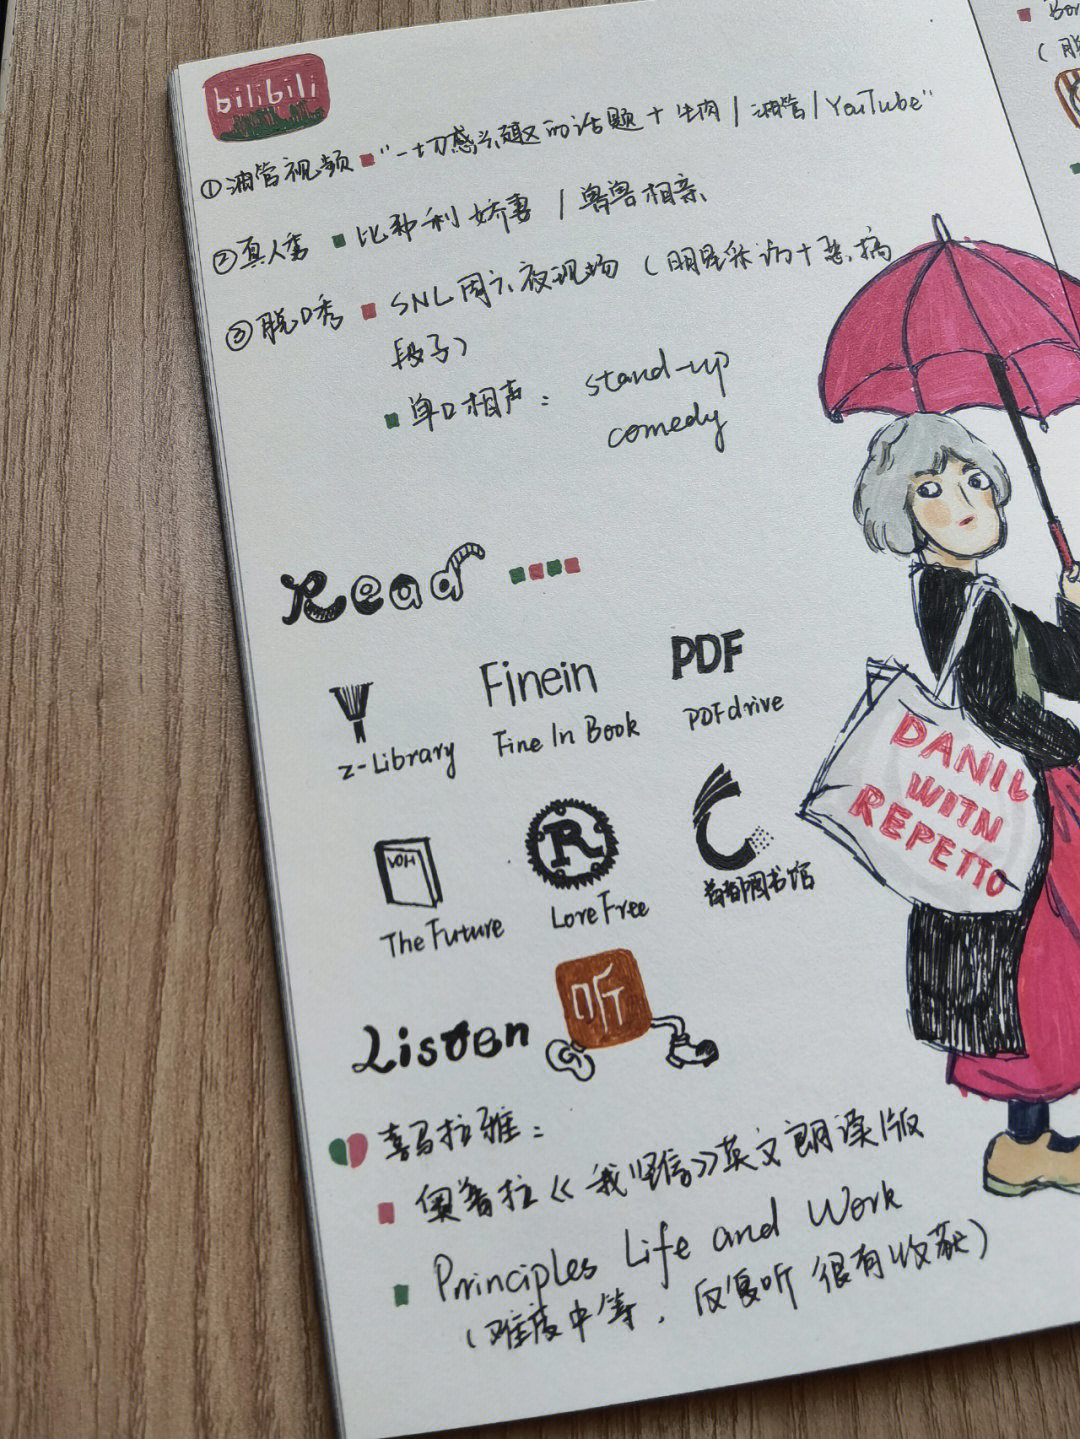 bilibili
①油管视频 "一切感兴趣的话题+牛肉/油管/YouTube"
②真人秀 比弗利娇妻/兽兽相亲
③脱口秀 SNL周六夜现场(明星采访+恶搞
段子)
单口相声: stand-up
comedy
Read
Finein
PDF
z-Library
Fine In Book
PDFdrive
VOH
R
The Future
LoreFree
首都图书馆
Listen
听
喜马拉雅:
奥普拉《我坚信》英文朗读版
Principles Life and Work
(难度中等,反复听 很有收获)
DANIL
WITN
REPETTO